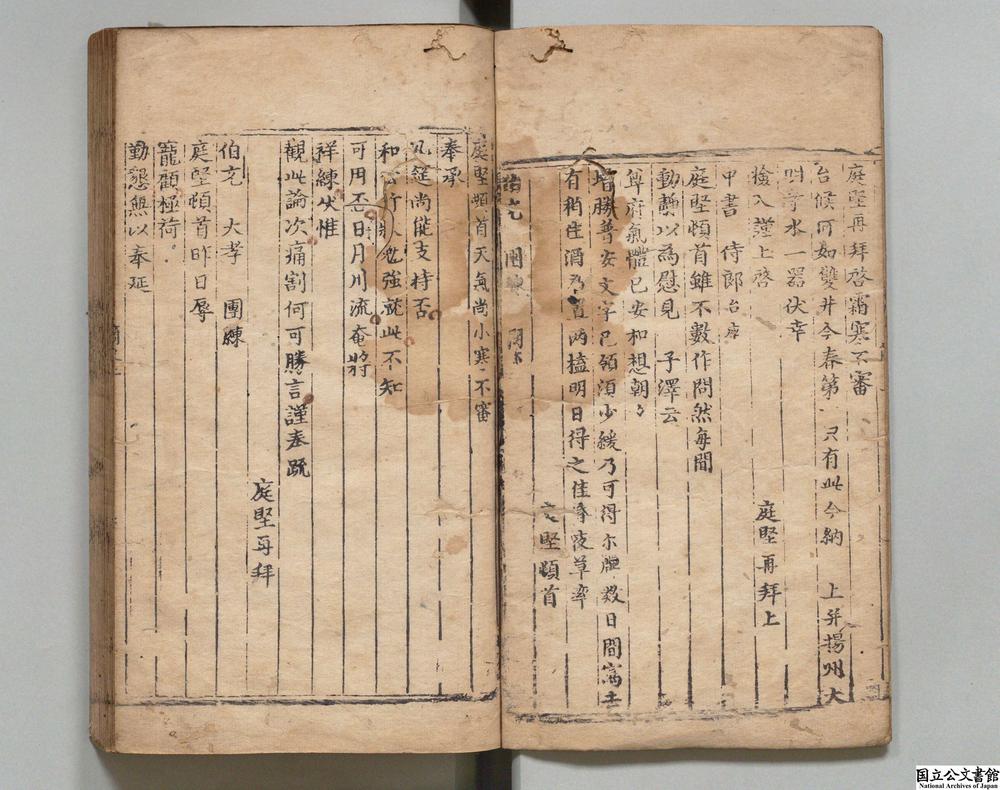 庭堅再拜啓霜寒不審
台候何如雙井今春第 只有此今納 上并揚州大
明寺水一器伏幸
檢入謹上啓 庭堅再拜上
中書 侍郎台座
庭堅頓首雖不數作問然每聞
動靜以為慰見 子澤云
尊府氣體已安和想朝夕
增勝普安文字已領須少緩乃可得 數日間
有稍生酒 置兩榼明日得之佳 夜草率
庭堅頓首
伯充 團練
庭堅頓首天氣尚小寒不審
奉承
几筵尚能支持否
和 行 勉強就此不知
可用否日月川流奄將
祥練伏惟
觀此論次痛割何可勝言謹奉疏
庭堅再拜
伯充 大孝 團練
庭堅頓首昨日辱
寵顧極荷
勤懇無以奉延
国立公文書館
National Archives of Japan